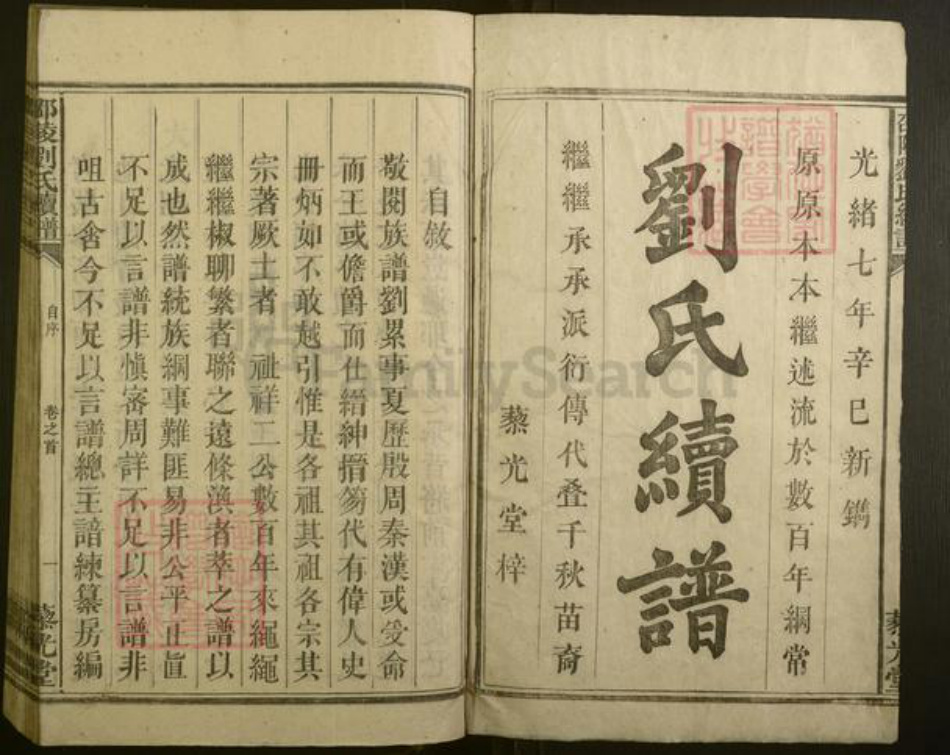 光緒七年辛巳新鐫
原原本本繼述流於數百年綱常
劉氏續譜
繼繼承承派衍傳代叠千秋苗裔
藜光堂梓
自敘
敬閱族譜劉累事夏歷殷周秦漢或受命
而王或儋爵而仕縉紳搢笏代有偉人史
冊炳如不敢越引惟是各祖其祖各宗其
宗著厥士者 祖祥工公數百年來繩繩
繼繼椒聊繁者聯之遠條渙者萃之譜以
成也然譜統族綱事難匪易非公平正直
不足以言譜非慎審周詳不足以言譜非
咀古含今不足以言譜總主諳練纂房編
邵陵劉氏續譜
自序
卷之首
一
藜光堂
FamilySearch